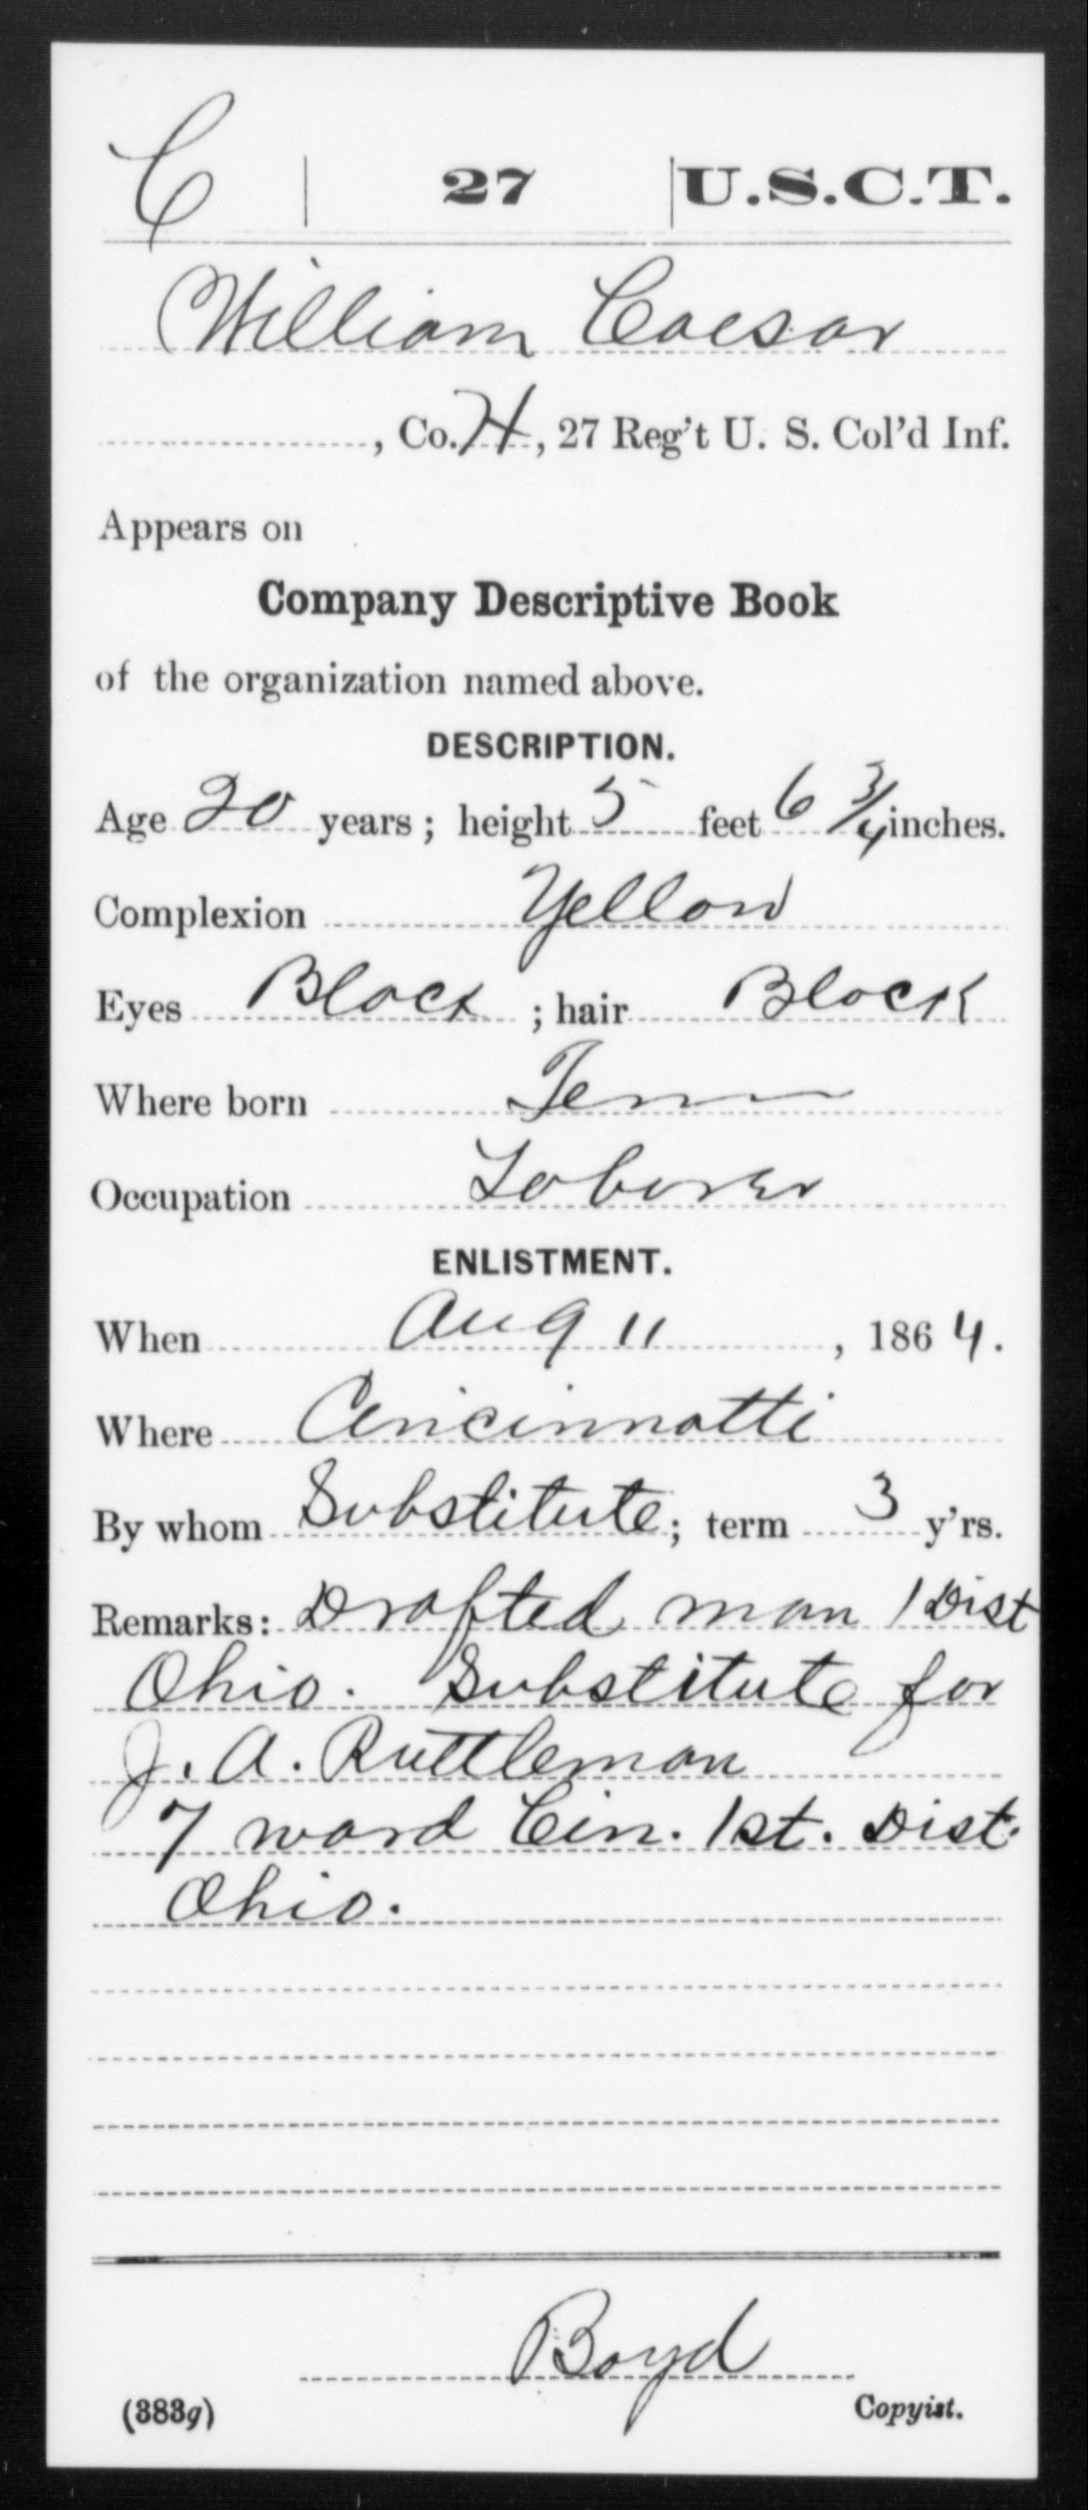 C | 27 | U.S.C.T.
William Caesar
, Co. H, 27 Reg't U. S. Col'd Inf.
Appears on
Company Descriptive Book
of the organization named above.
DESCRIPTION.
Age 20 years; height 5 feet 6 3/4 inches.
Complexion Yellow
Eyes Black; hair Black
Where born Tenn
Occupation Laborer
ENLISTMENT.
When Aug 11, 1864.
Where Cincinnatti
By whom Substitute; term 3 y'rs.
Remarks: Drafted man 1 Dist
Ohio. Substitute for
J. A. Ruttleman
7 ward Cin. 1st. Dist.
Ohio.
Boyd
(383g) Copyist.